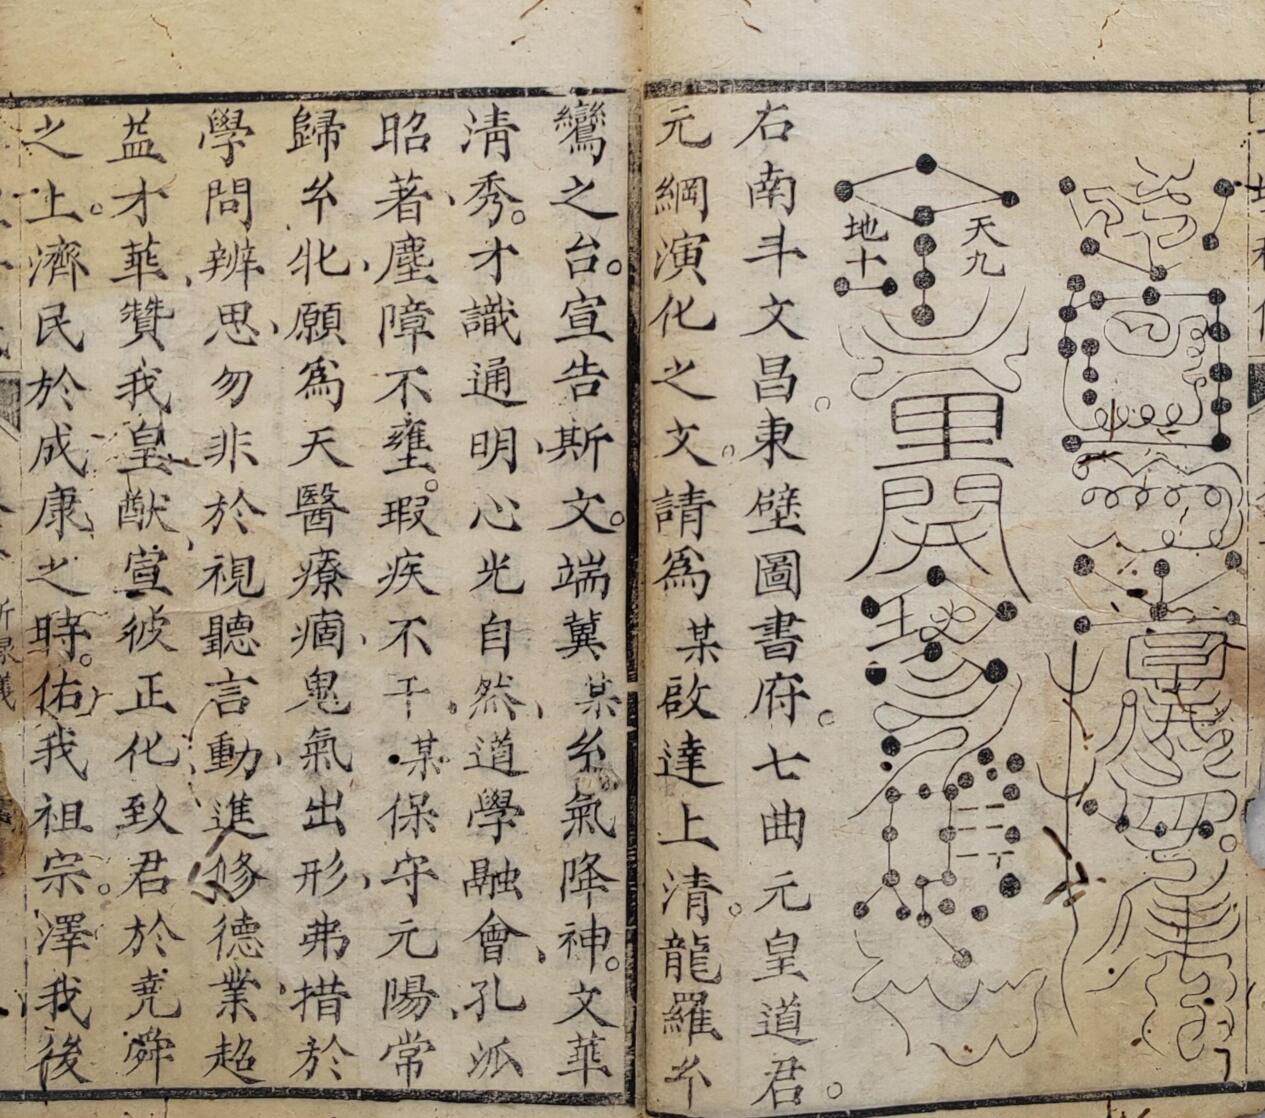 天九
地十
右南斗文昌東壁圖書府七曲元皇道君
元綱演化之文請爲某啟達上清龍羅𠫔
鸞之台宣告斯文端冀某𠫔氣降神文華
清秀才識通明心光自然道學融會孔泒
昭著塵障不壅瑕疾不干某保守元陽常
歸𠫔牝願爲天醫療痼鬼氣出形弗措於
學問辨思勿非於視聽言動進修德業超
益才華贊我皇猷宣彼正化致君於堯舜
之上濟民於成康之時佑我祖宗澤我後